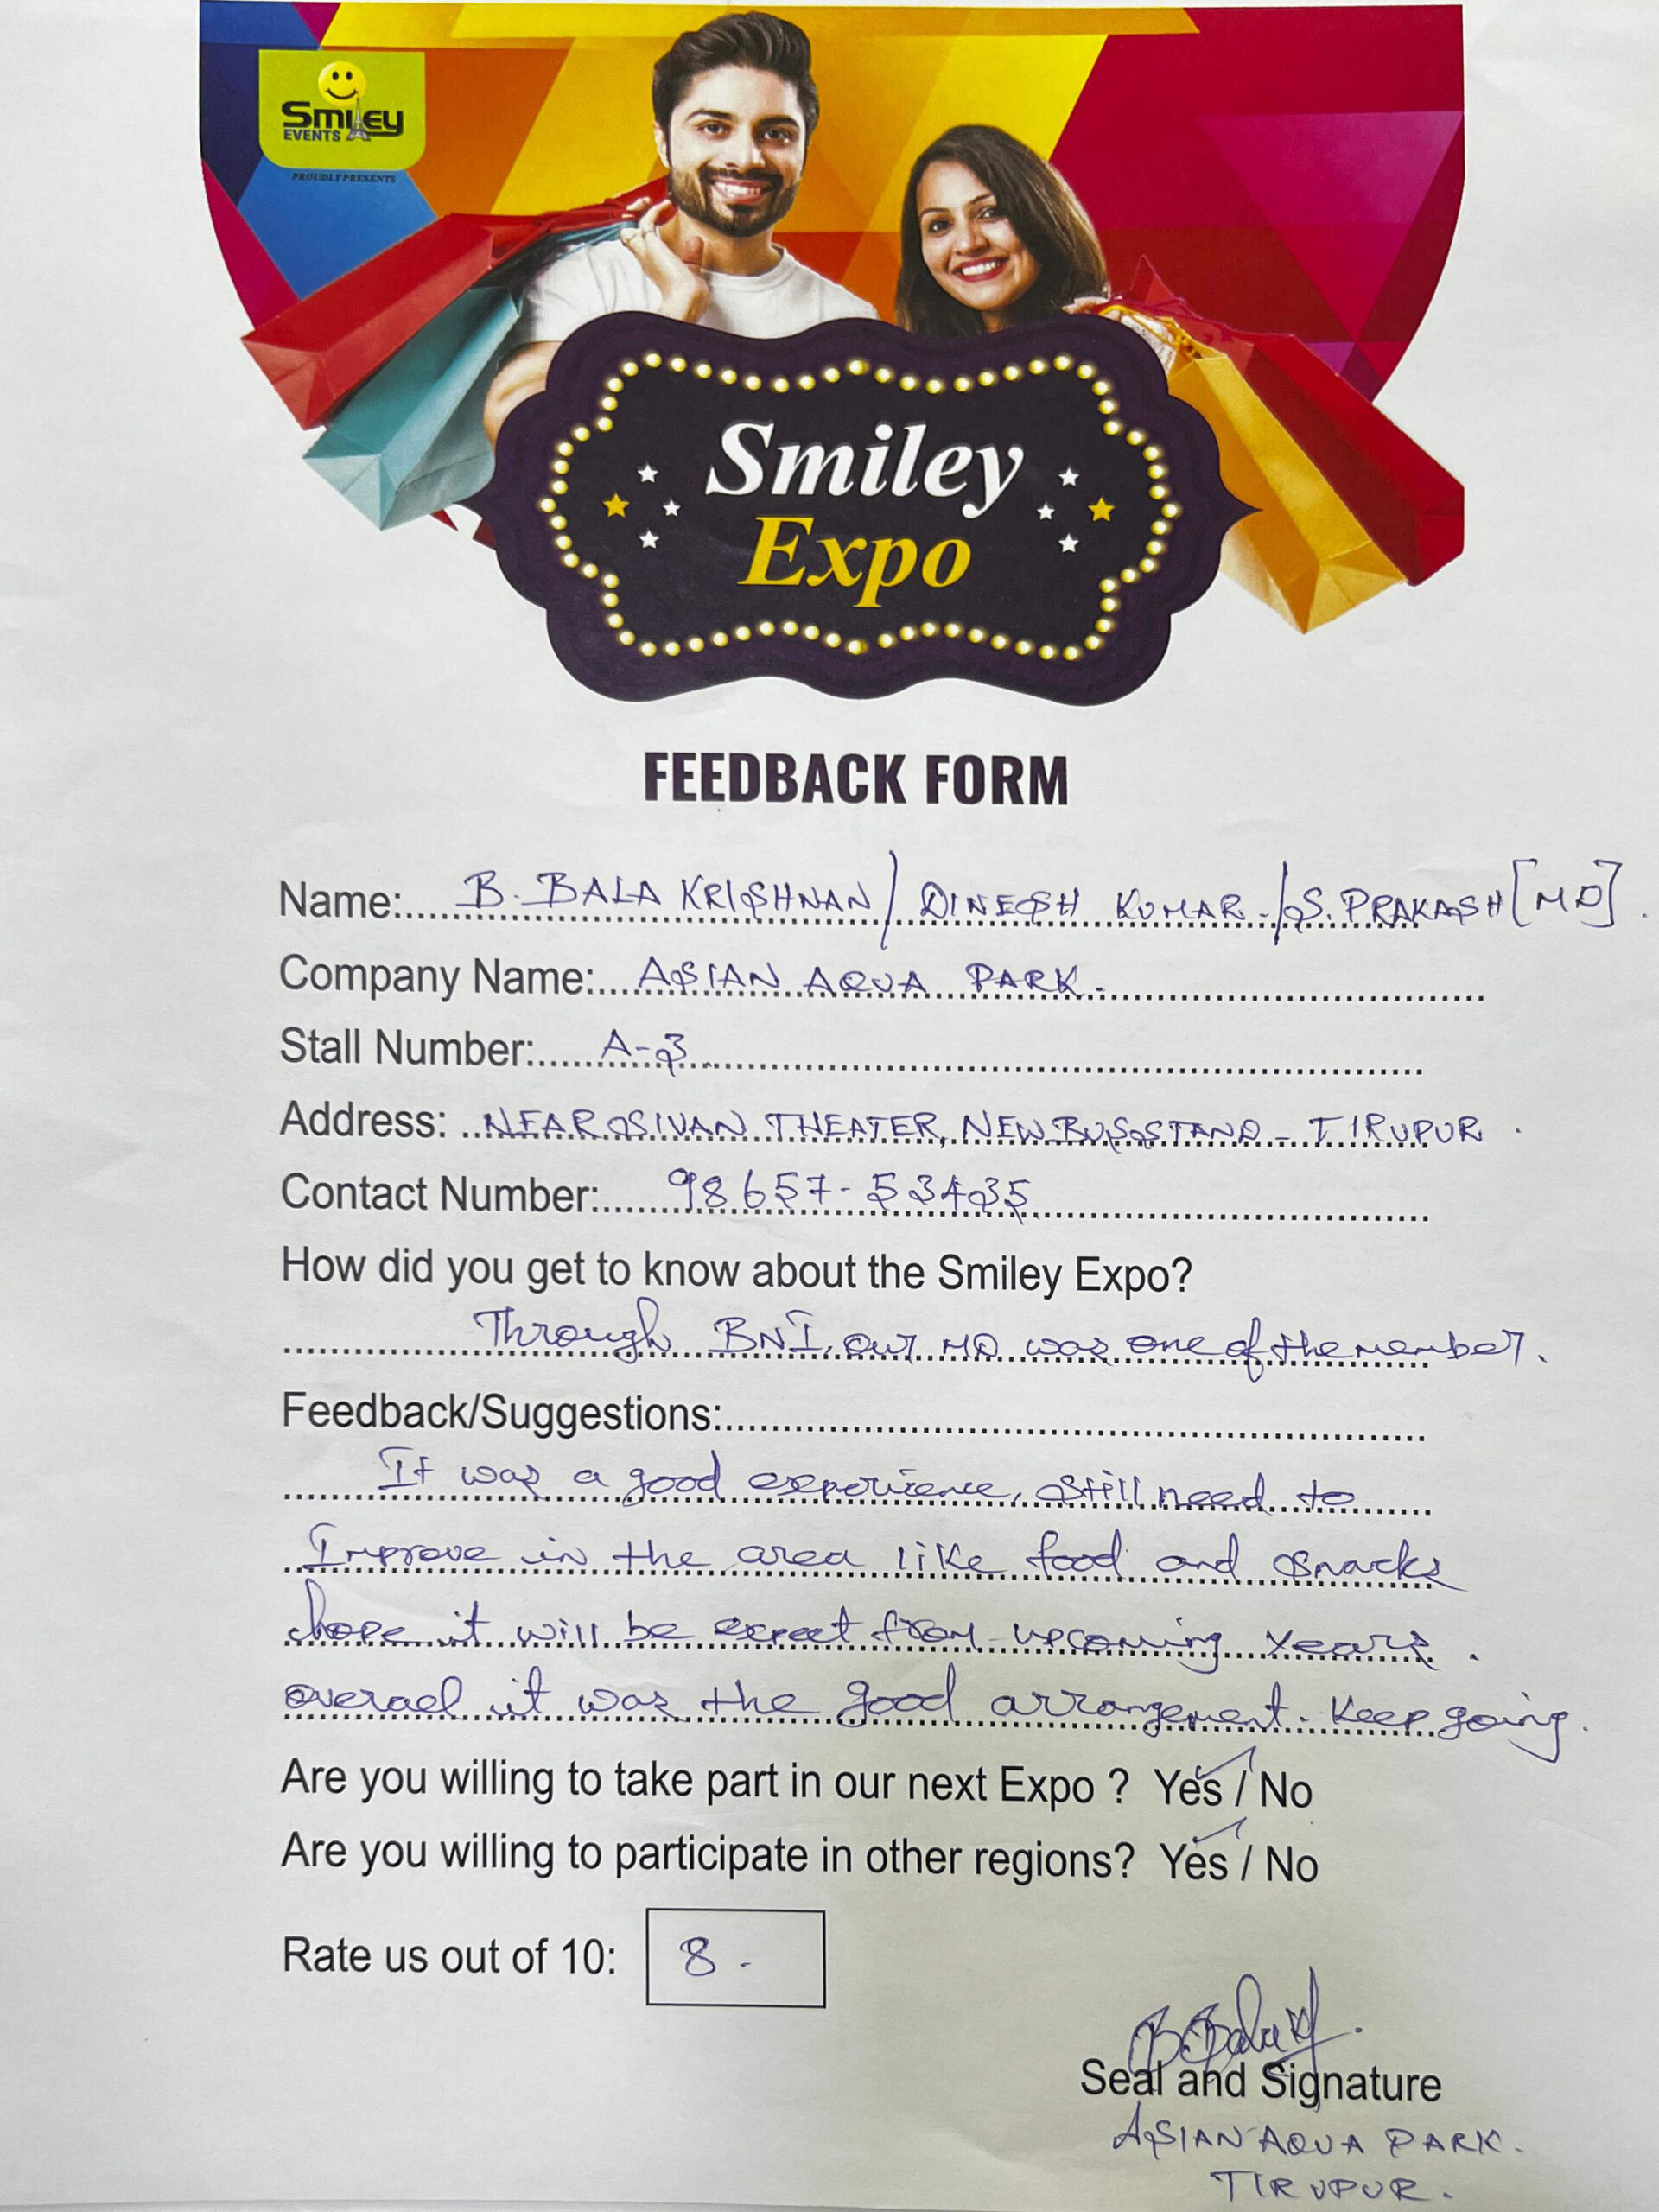 Smiley
EVENTS
PROUDLY PRESENTS
Smiley
Expo
FEEDBACK FORM
Name: B. BALA KRISHNAN / DINESH KUMAR - / S. PRAKASH [MD].
Company Name: ASIAN AQUA PARK.
Stall Number: A-3
Address: NEAR SIVAN THEATER, NEW BUS STAND - TIRUPUR.
Contact Number: 98657-53435
How did you get to know about the Smiley Expo?
Through BNI, our MD was one of the member.
Feedback/Suggestions:
It was a good experience, still need to
Improve in the area like food and snacks
hope it will be expect from upcoming years.
overael it was the good arrangement. Keep going.
Are you willing to take part in our next Expo ? Yes / No
Are you willing to participate in other regions? Yes / No
Rate us out of 10: 8.
Seal and Signature
ASIAN AQUA PARK.
TIRUPUR.